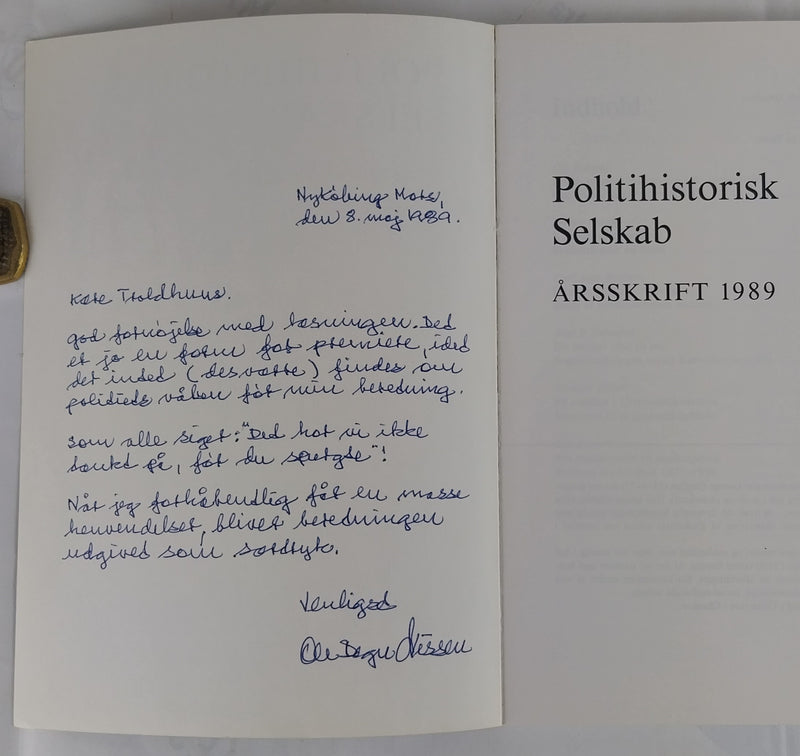 Nykøbing Mors,
den 8. maj 1989.
Kære Troldhuus.
god fornøjelse med læsningen. Det
er jo en form for premiere, idet
der intet (desværre) findes om
politiets våben før min beretning.
Som alle siger: "Det har vi ikke
tænkt på, før du spurgte"!
Når jeg forhåbentlig får en masse
henvendelser, bliver beretningen
udgivet som særtryk.
Venligst
Ole Nissen
Politihistorisk
Selskab
ÅRSSKRIFT 1989